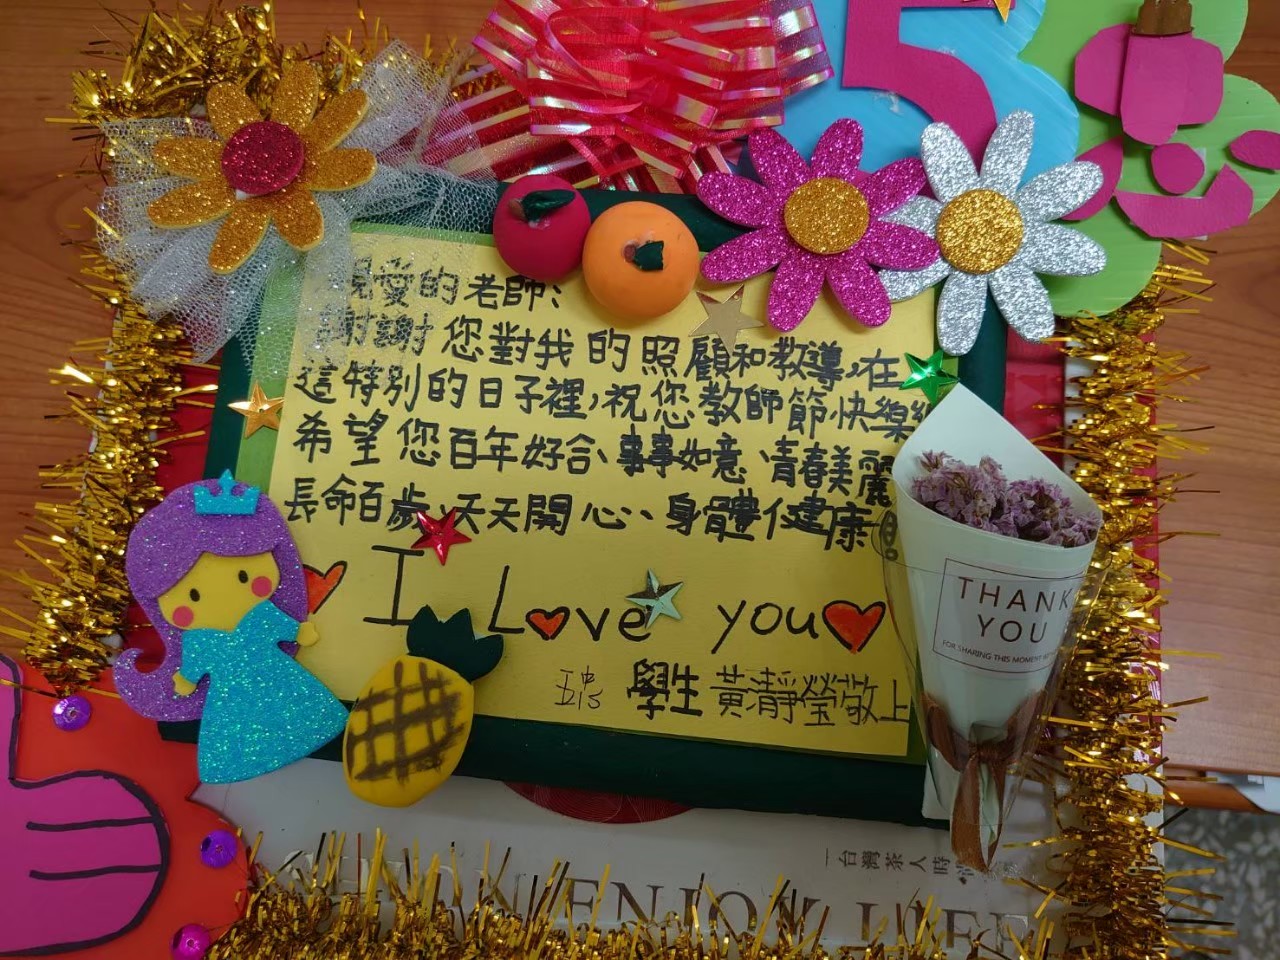 5
親愛的老師：
謝謝您對我的照顧和教導，在
這特別的日子裡，祝您教師節快樂
希望您百年好合、事事如意、青春美麗
長命百歲、天天開心、身體健康
I Love you
五忠 學生 黃清靜瑩敬上
THANK
YOU
FOR SHARING THIS MOMENT
一台灣茶人時
ENJOY LIFE